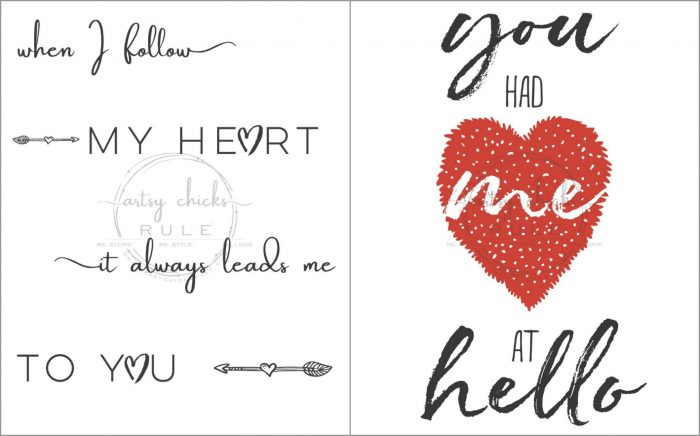 when I follow
MY HEART
it always leads me
TO YOU
artsy chicks
RULE
you
HAD
me
AT
hello